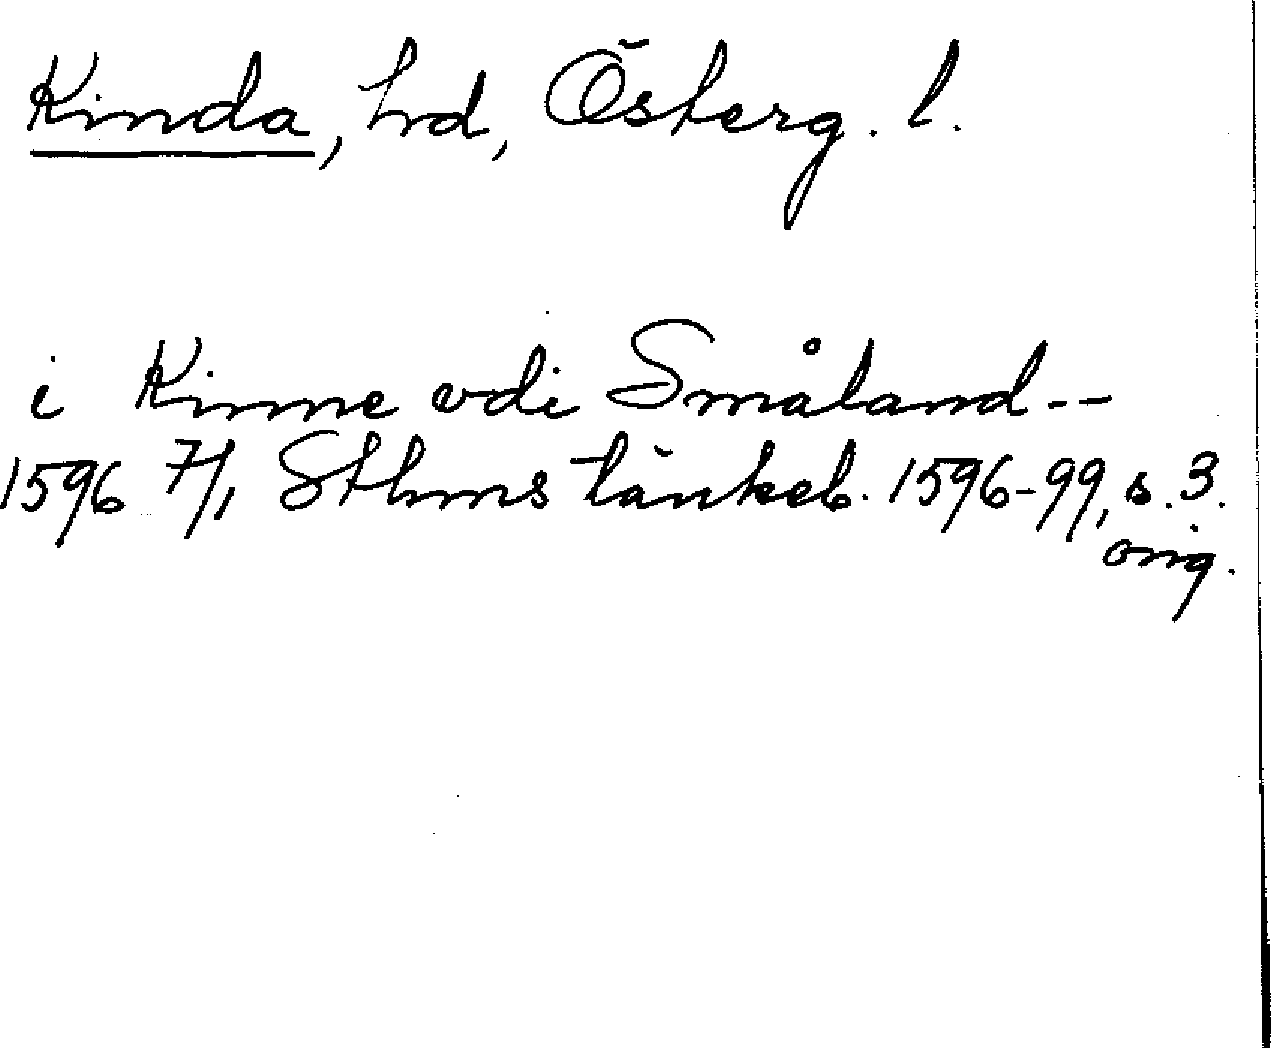 Kinda, hd, Österg. l.
i Kinne vdi Småland--
1596 7/1, Sthms tänkeb. 1596-99, s. 3.
orig.